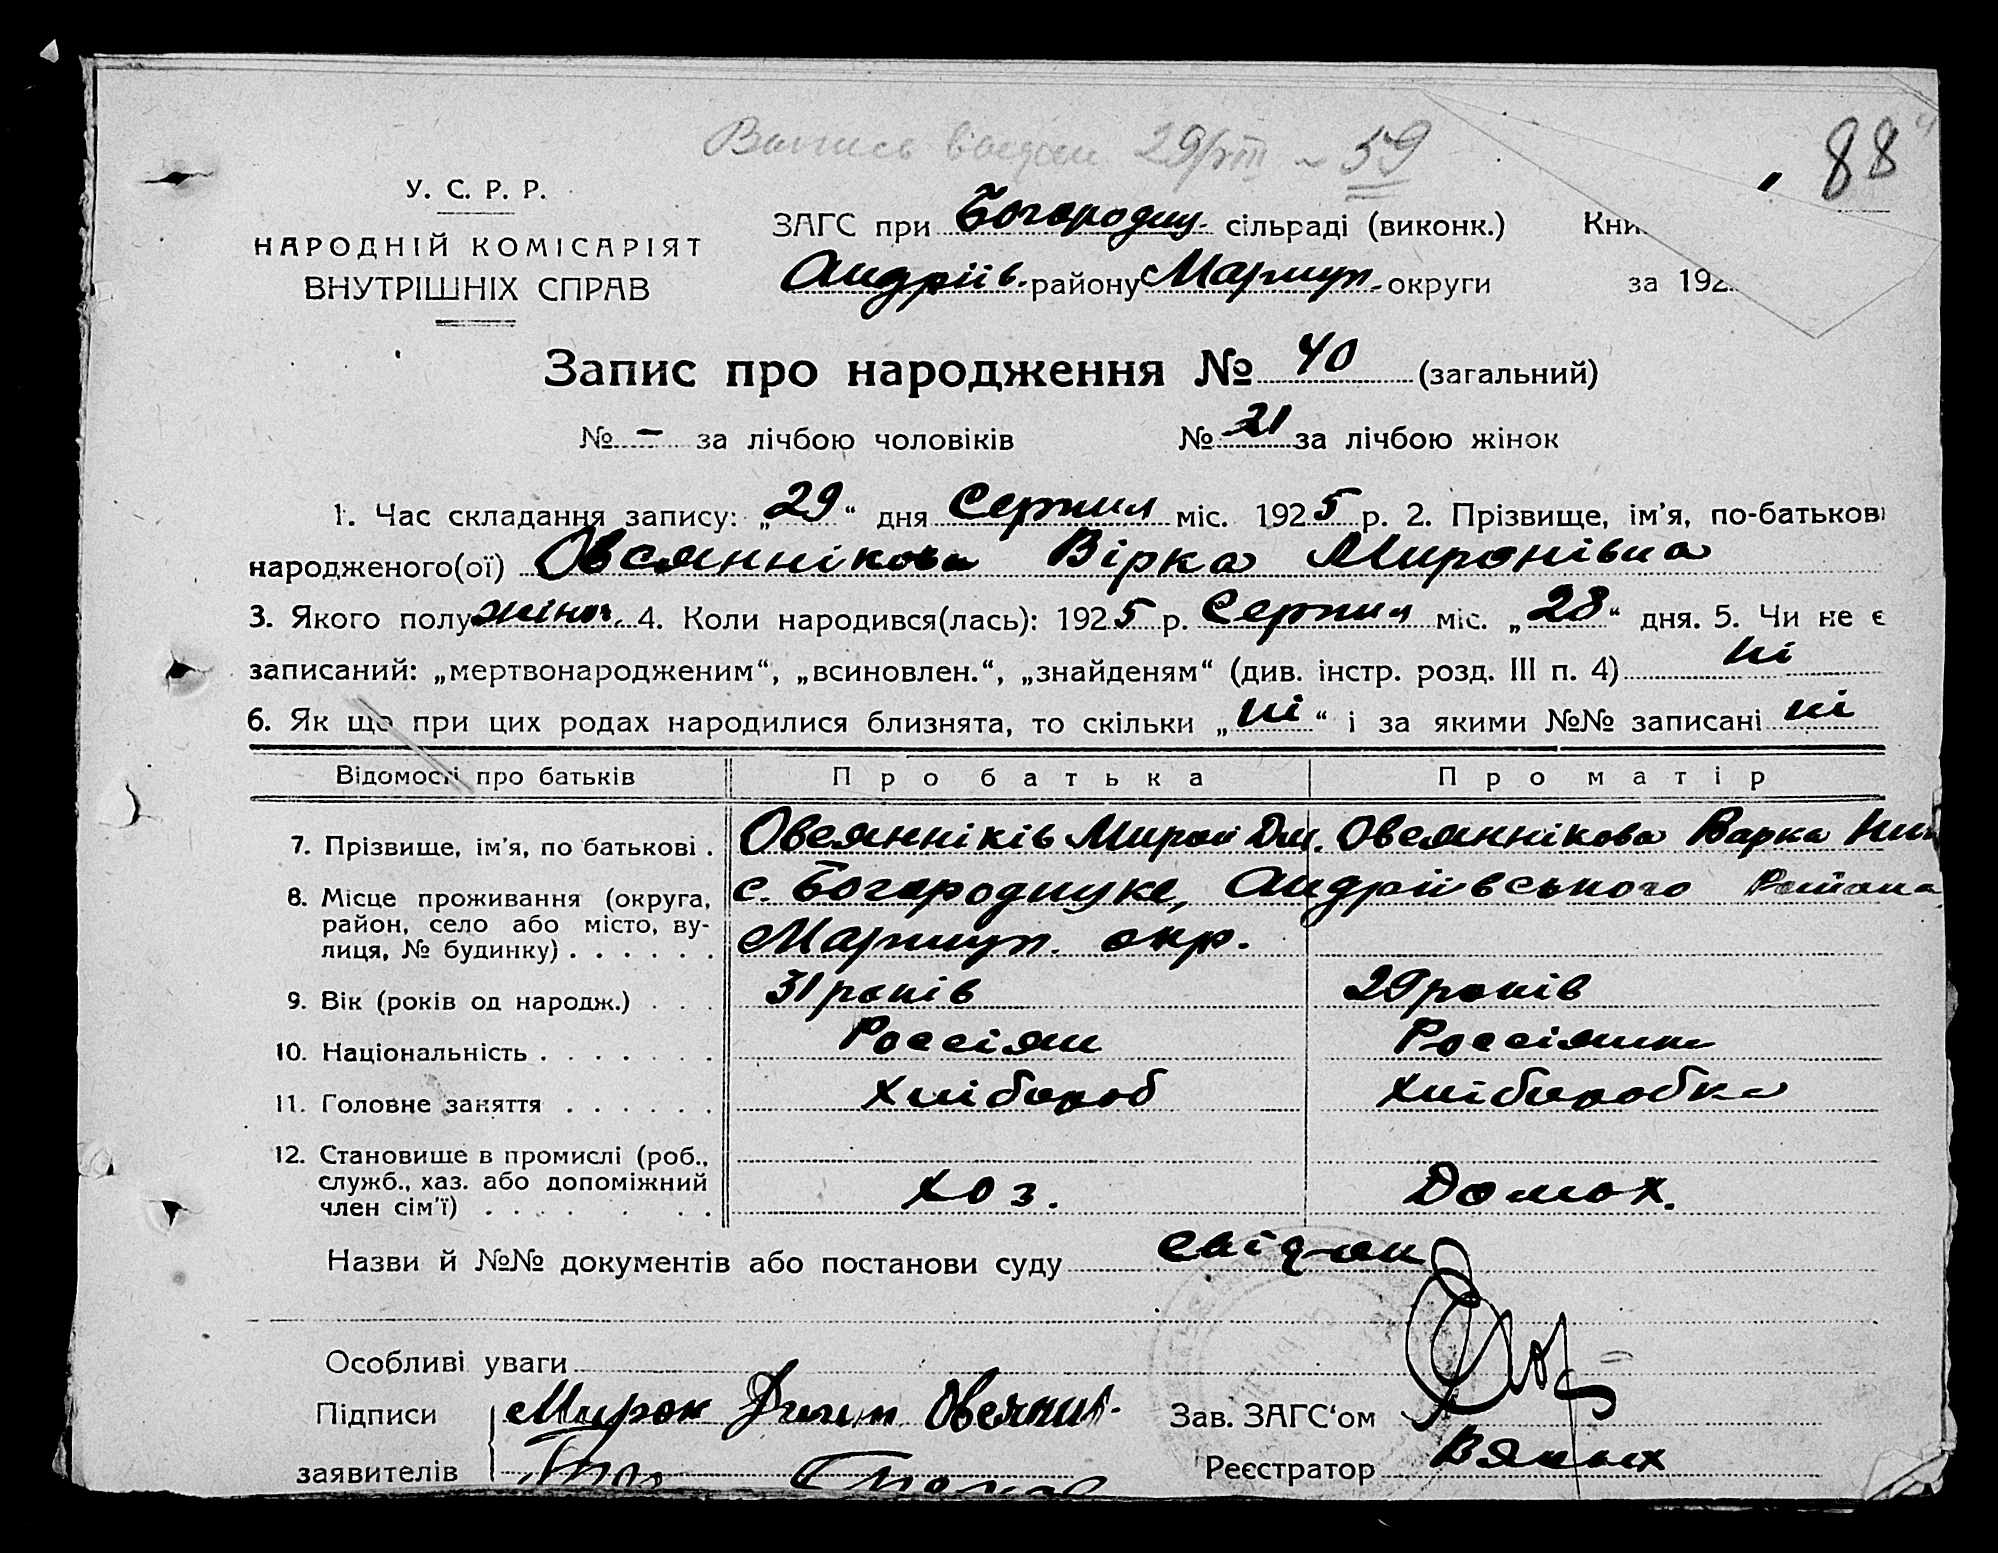 29/VIII – 59
88
У. С. Р. Р.
НАРОДНІЙ КОМІСАРІЯТ
ВНУТРІШНІХ СПРАВ
ЗАГС при Богородиц. сільраді (виконк.) Кни
Андріїв. району Маріуп. округи за 192
Запис про народження № 40 (загальний)
№ – за лічбою чоловіків № 21 за лічбою жінок
1. Час складання запису: „29“ дня Серпня міс. 1925 р. 2. Прізвище, ім'я, по-батькові
народженого(ої) Овсяннікова Вірка Миронівна
3. Якого полу жіноч. 4. Коли народився(лась): 1925 р. Серпня міс. „28“ дня. 5. Чи не є
записаний: „мертвонародженим“, „всиновлен.“, „знайденям“ (див. інстр. розд. III п. 4) ні
6. Як що при цих родах народилися близнята, то скільки „ні“ і за якими №№ записані ні
Відомості про батьків Про батька Про матір
7. Прізвище, ім'я, по батькові . Овсянніків Мирон Дм. Овсяннікова Варка
8. Місце проживання (округа, с. Богородицке, Андріївського Района
район, село або місто, ву-
лиця, № будинку) . . . . . . Маріуп. окр.
9. Вік (років од народж.) . . . 31 років 29 років
10. Національність . . . . . . . Россіян Россіянка
11. Головне заняття . . . . . . Хлібороб Хліборобка
12. Становище в промислі (роб.,
служб., хаз. або допоміжний Хоз. Домох.
член сім'ї) . . . . . . .
Назви й №№ документів або постанови суду
Особливі уваги
Підписи Мирон Овсянік. Зав. ЗАГС'ом
заявителів Реєстратор Вялых